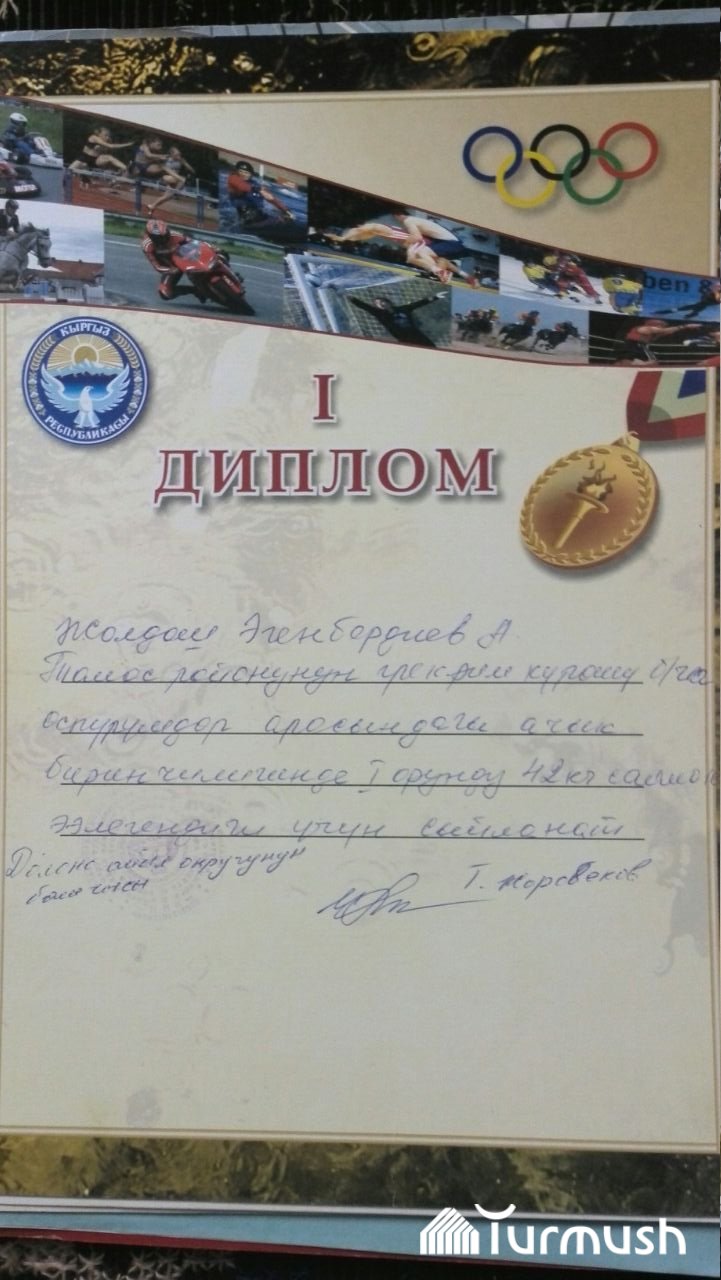 ben &
КЫРГЫЗ
РЕСПУБЛИКАСЫ
I
ДИПЛОМ
Жолдош Эгенбердиев А.
Талас районунун грек-рим күрөшү б/ча
өспүрүмдөр арасындагы ачык
биринчилигинде I орунду 42 кг салмакта
ээлегендиги үчүн сыйланат
айыл округунун
башчысы
Т. Жоробеков
Turmush